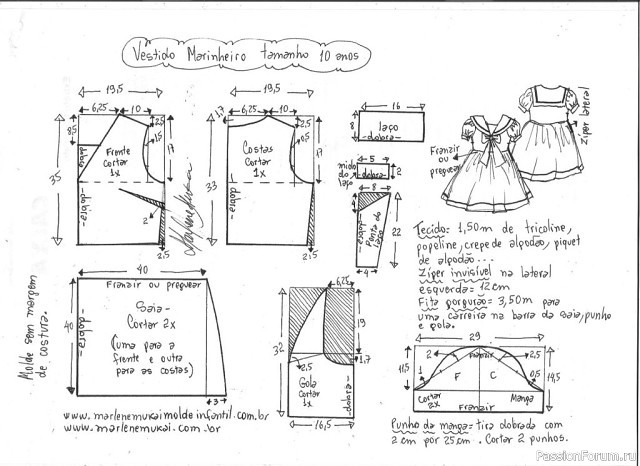 Vestido Marinheiro tamanho 10 anos
19,5
6,25
10
2,5
8,5
1,5
17
35
dobra
Frente
Cortar
1x
dobra
2
2,5
19,5
1,7
6,25
10
2,5
0,5
17
33
Costas
Cortar
1x
dobra
2,5
16
8
laço
dobra
5
miolo
do
laço
dobra
2
8
dobra
Ponta do
laço
22
4
Franzir
ou
preguear
Zíper lateral
Tecido: 1,50m de tricoline,
popeline, crepe de algodão, piquet
de algodão...
Zíper invisível na lateral
esquerda = 12cm
Fita gorgurão = 3,50m para
uma carreira na barra da saia, punho
e gola.
40
Franzir ou preguear
40
dobra
Saia-
Cortar 2x
(uma para a
frente e outra
para as costas)
3
Molde sem margem
de costura.
6,25
32
19
1,7
2,5
Gola
Cortar
1x
dobra
16,5
29
11,5
2
Franzir
2,5
1
F
C
0,5
14,5
Cortar
2x
Manga
Franzir
www.marlenemukaimoldeinfantil.com.br
www.marlenemukai.com.br
Punho da manga = tira dobrada com
2 cm por 25cm. Cortar 2 punhos.
PassionForum.ru